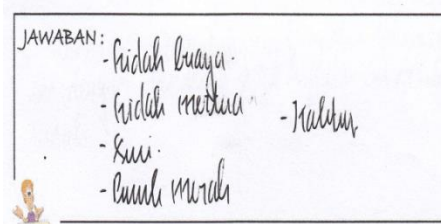 JAWABAN:
- Lidah buaya.
- Lidah mertua
- Kaktus
- Seri.
- Pucuk merah